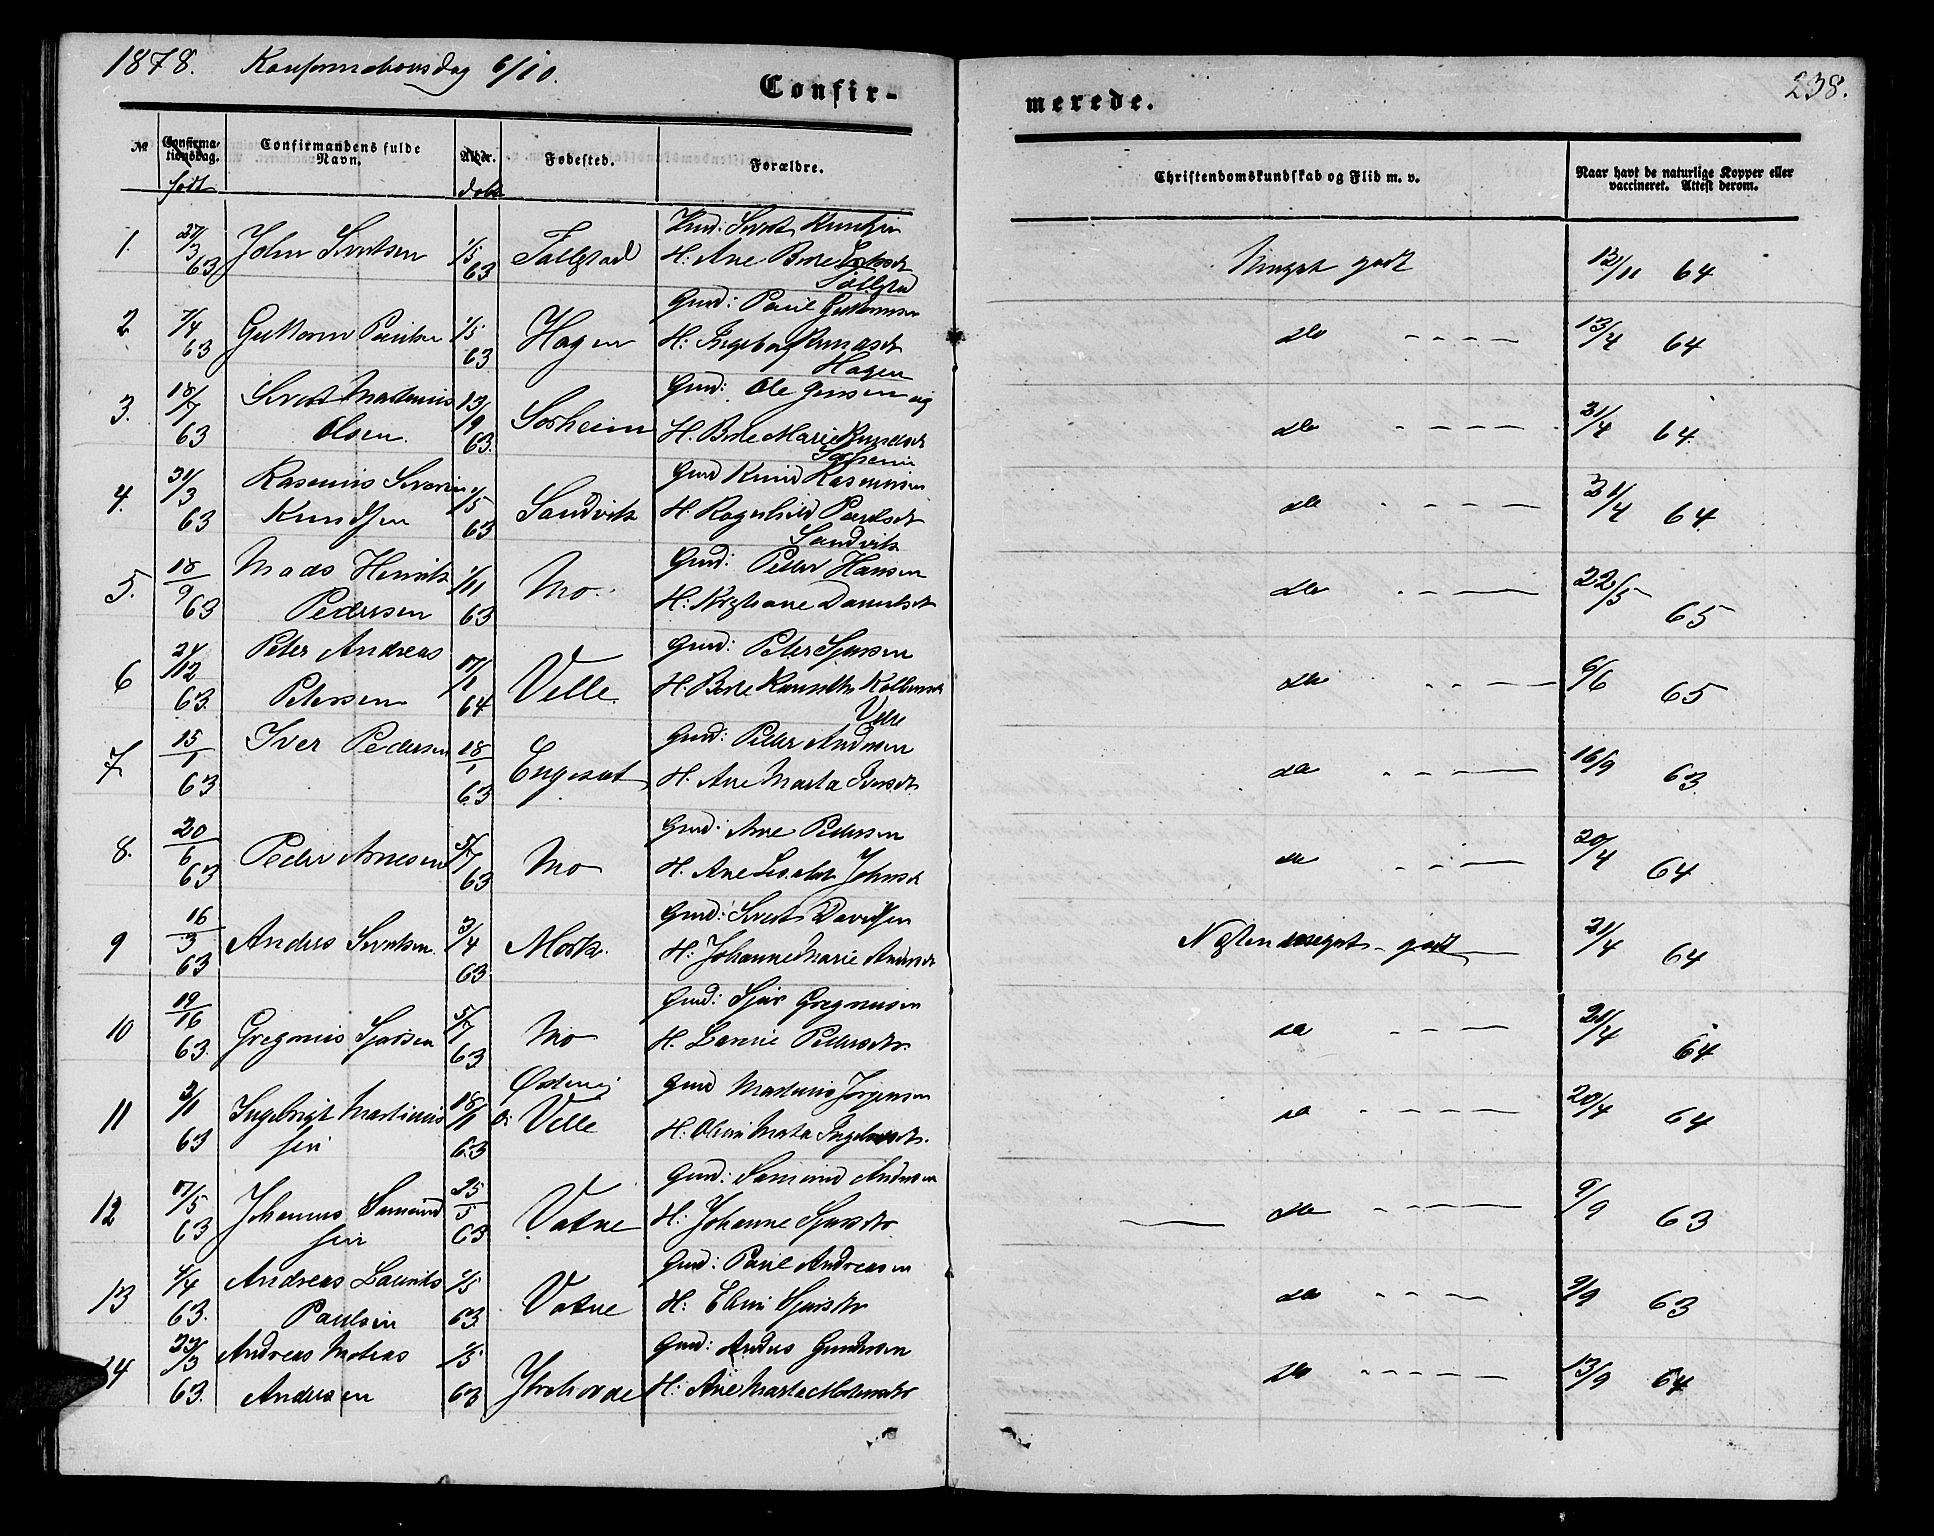 1878. Konfirmationsdag 6/10.
Confirmerede.
238.
No | Confirmationsdag. født | Confirmandens fulde Navn. | Alder. døbt | Fødested. | Forældre. | Christendomskundskab og Flid m. v. | Naar havt de naturlige Kopper eller vaccineret. Attest derom.
1. 63 John Sivertsen 1/5 63 Gmd: Sivert Knudsen
H. Ane Berte
Meget godt 12/11 64
2 7/4 63 Guttorm Paulsen 1/5 63 Hagen Gmd: Paul Guttormsen
H: Ingeborg Hagen
do - - - - 13/4 64
3. 18/7 63 Sivert Martinus Olsen. 13/9 63. Sorheim Gmd: Ole Jensen og
H. Berte Marie Knudsdt Sorheim
do - - - - 21/4 64.
4. 31/3 63 Rasmus Severin Knudsen 1/5 63 Sandvik Gmd Knud Rasmussen
H. Ragnhild Paulsdt Sandvik
do - - - 21/4 64.
5. 18/9 63 Mads Henrik Pedersen 1/11 63 Mo. Gmd: Peder Hansen
H: Danielsdt
do - - - 22/5 65
6 24/12 63. Peter Andreas Petersen 17/1 64 Velle. Gmd: Peter Sjursen
H. Berte Velle
do - - - 6/6 65
7. 15/1 63 Iver Pedersen 18/1 63 Engeset Gmd: Peder Andersen
H. Ane Marta Iversdt.
do - - - 16/9 63.
8. 20/6 63 Peder Arnesen 5/7 63 Mo Gmd: Arne Pedersen
H. Ane Johnsdt
do - - - 20/4 64
9 16/3 63 Anders Sivertsen. 3/4 63 Mork. Gmd: Sivert Davidsen
H: Johanne Marie Andersdt
Næsten meget - godt 21/4 64
10 19/16 63. Gregorius Sjursen 5/7 63 Mo Gmd: Sjur Gregoriusen
H. Pedersdtr.
do - - - 21/4 64
11 2/11 63 Ingebrigt Martinussen 18/11 63 Velle Gmd Martinus Jørgensen
H: Marta
do - - - 20/4 64
12 17/5 63 Johannes Samundsen 25/5 63 Vatne Gmd: Samund Andersen
H: Johanne Sjursdtr
do - - - 9/9 63
13 4/4 63. Andreas Laurits Paulsen 1/5 63 Vatne Gmd: Paul Andreasen
H: Elen Sjursdtr
do - - - 9/9 63
14 23/3 63. Andreas Matias Andersen 1/5 63 Gmd: Anders Gundersen
H: Ane Marta
do - - - - 13/9 64